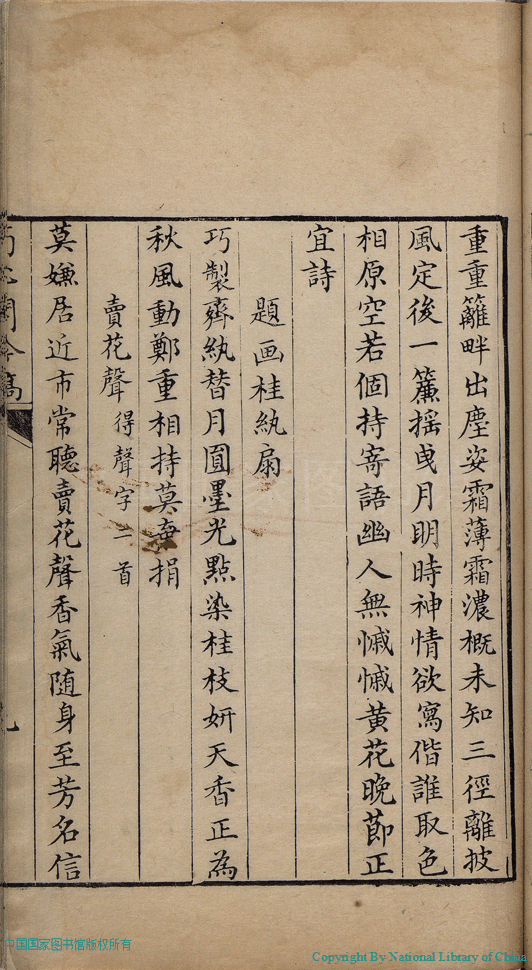 重重籬畔出塵姿霜薄霜濃概未知三徑離披
風定後一簾搖曵月明時神情欲寫偕誰取色
相原空若個持寄語幽人無慽慽黃花晚節正
宜詩
題画桂紈扇
巧製齊紈替月圓墨光點染桂枝妍天香正為
秋風動鄭重相持莫捐
賣花聲 得聲字二首
莫嫌居近市常聽賣花聲香氣随身至芳名信
吟稿
九
中国国家图书馆版权所有
Copyright By National Library of China